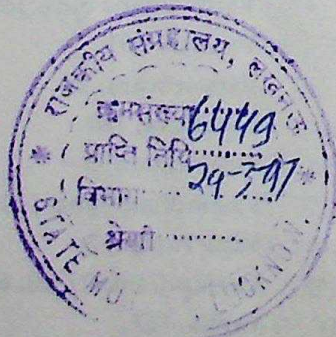 राजकीय संग्रहालय, लखनऊ
क्रमसंख्या 6449
प्राप्ति तिथि 29-3-97
विभाग
श्रेणी
STATE MU LUCKNOW.